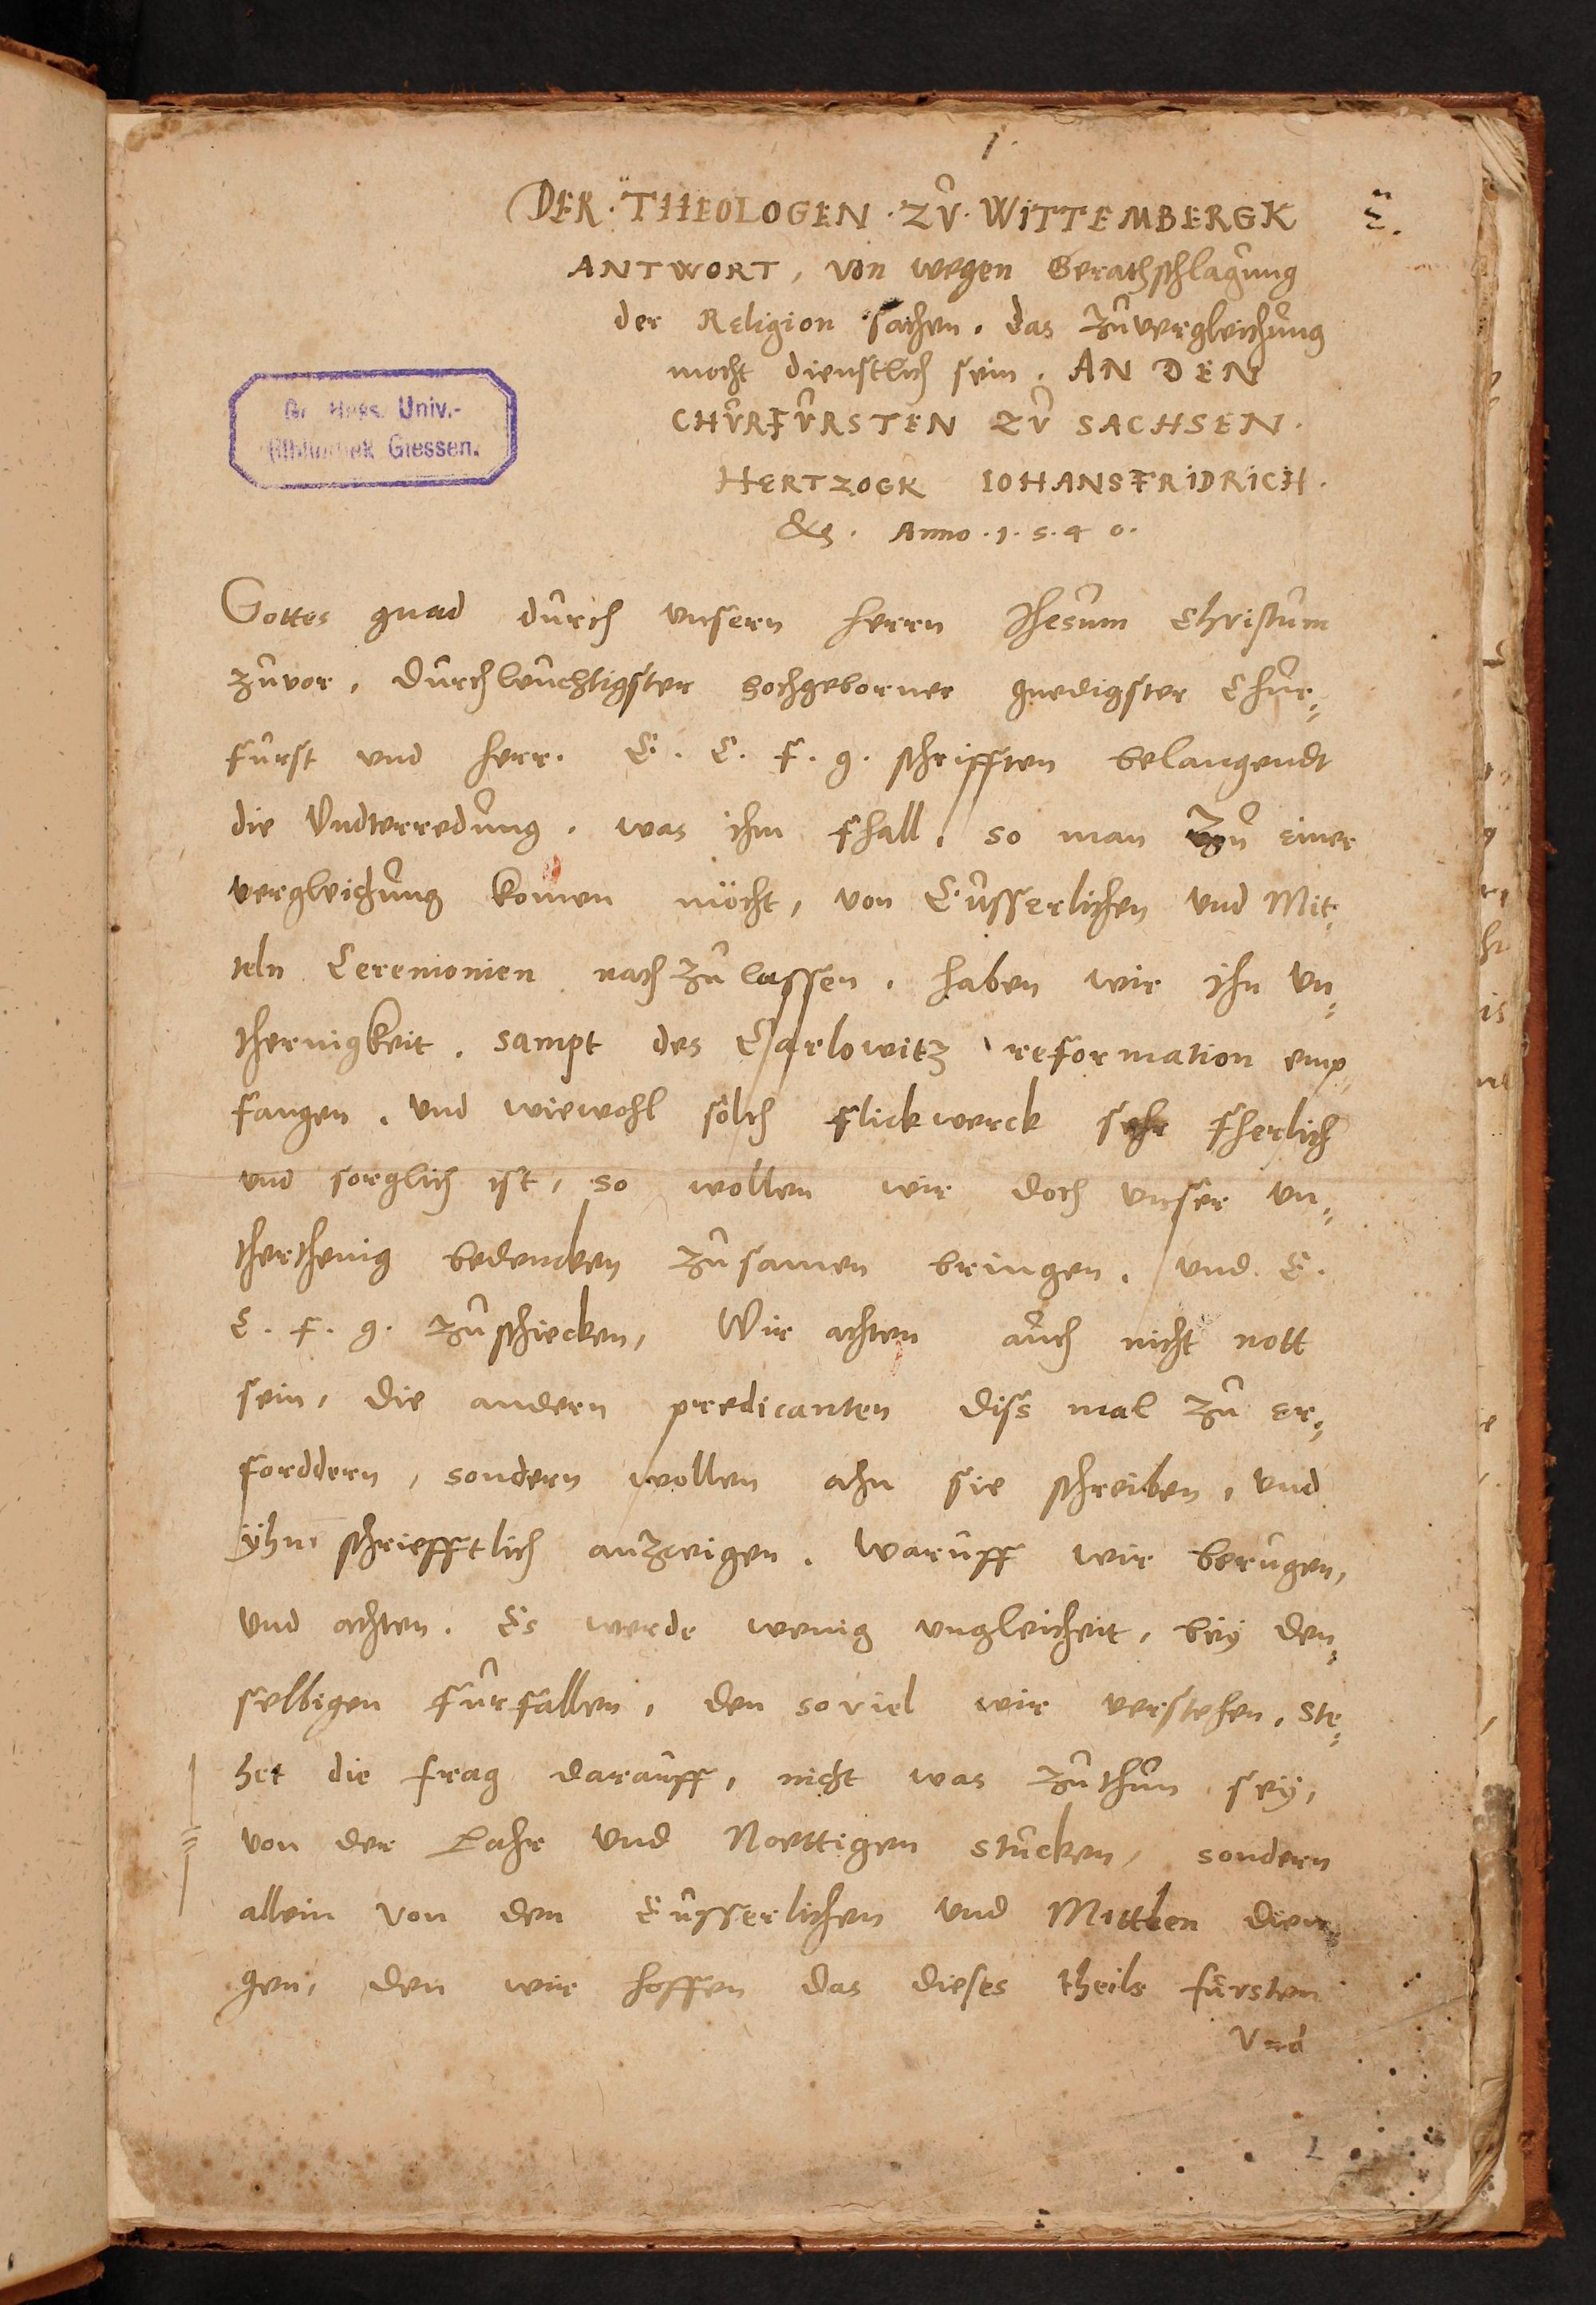 1.
DER · THEOLOGEN · ZŬ · WITTEMBERGK
E.
ANTWORT, von wegen Berathschlagŭng
der Religion sachen. das zŭvergleichŭng
mocht dienstlich sein. AN DEN
CHŬRFŬRSTEN ZŬ SACHSEN.
HERTZOGK IOHANSFRIDRICH.
&c. Anno. 1. 5. 4 0.
Gr. Hess. Univ.-
Bibliothek Giessen.
Gottes gnad dŭrch vnsern herrn Jhesŭm Christŭm
zŭvor, dŭrchleŭchtigster hochgeborner gnedigster Chŭr=
fŭrst vnd herr. E. C. F. g. schrifften belangendt
die Vndterredŭng. was ihm fhall, so man zŭ einer
vergleichŭng komen möcht, von Eŭsserlichen vnd Mit=
teln Ceremonien nach zŭ lassen. haben wir ihn vn=
thernigkeit. sampt des Carlowitz reformation emp=
fangen. vnd wiewohl solch flickwerck sehr fherlich
vnd sorglich ist, so wollen wir doch vnser vn=
therthenig bedencken zŭsamen bringen. vnd E.
C. F. g. zŭschicken, Wir achten aŭch nicht nott
sein, die andern predicanten diss mal zŭ er=
forddern, sondern wollen ahn sie schreiben, vnd
ÿhn schriefftlich anzeigen. warŭff wir berŭgen,
vnd achten. Es werde wenig vngleicheit, beÿ den=
selbigen fŭrfallen, den soviel wir verstehen, ste=
het die frag daraŭff, nicht was zŭthŭn seÿ,
von der Lahr vnd Noettigen stŭcken, sondern
allein von den Eŭsserlichen vnd Mittlen dien
gen, den wir hoffen das dieses theils fŭrsten
Vnd
1